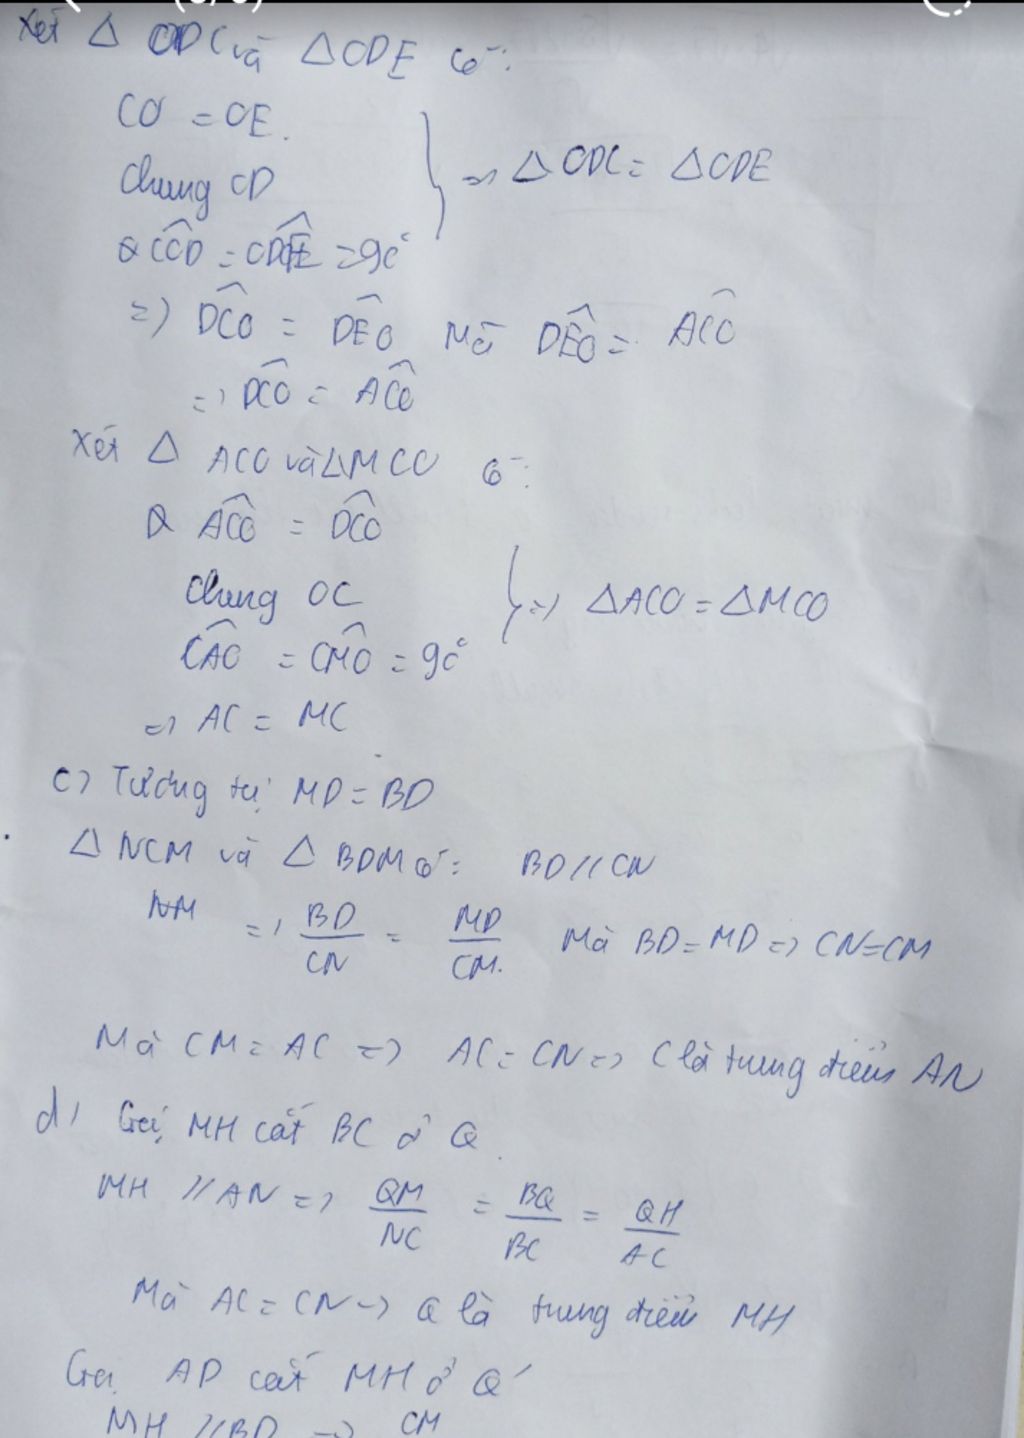 Xét Δ ODC và ΔODE có:
CO = OE.
Chung OD => ΔODC = ΔODE
& COD = DOE = 90°
=> DCO = DEO Mà DEO = ACO
=> DCO = ACO
Xét Δ ACO và ΔMCO có:
& ACO = DCO
Chung OC => ΔACO = ΔMCO
CAO = CMO = 90°
=> AC = MC
c) Tương tự MD = BD
Δ NCM và Δ BDM có: BD // CN
NM => BD/CN = MD/CM. Mà BD = MD => CN = CM
Mà CM = AC => AC = CN => C là trung điểm AN
d) Gọi MH cắt BC ở Q.
MH // AN => QM/NC = BQ/BC = QH/AC
Mà AC = CN => Q là trung điểm MH
Gọi AD cắt MH ở Q'
MH // BD => CM